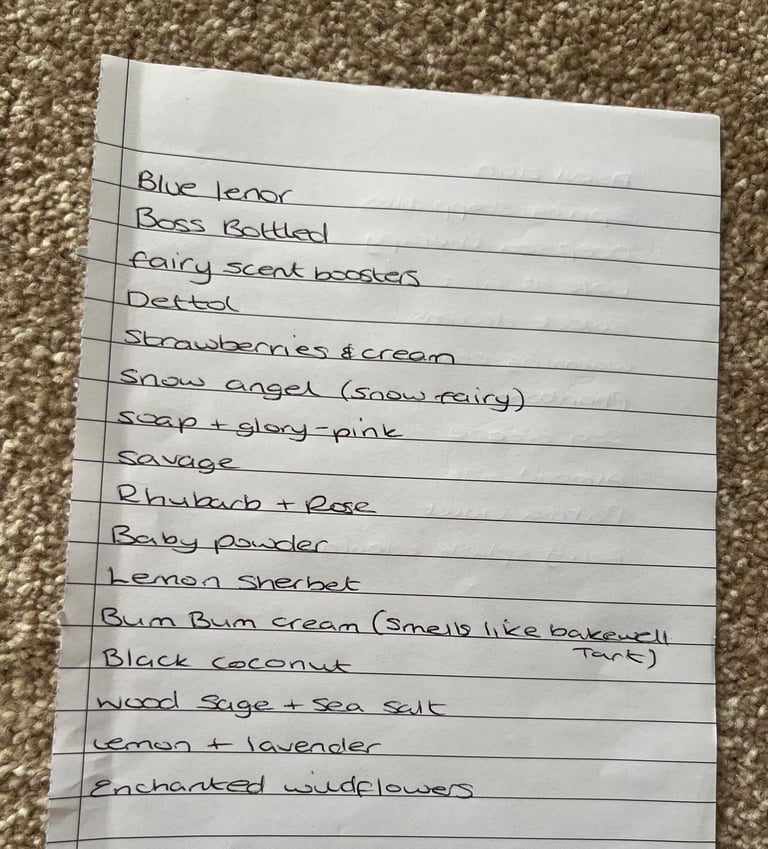 Blue lenor
Boss Bottled
fairy scent boosters
Dettol
Strawberries & cream
Snow angel (snow fairy)
soap + glory-pink
Savage
Rhubarb + Rose
Baby powder
Lemon Sherbet
Bum Bum cream (smells like bakewell
Tart)
Black coconut
wood sage + sea salt
Lemon + lavender
Enchanted wildflowers